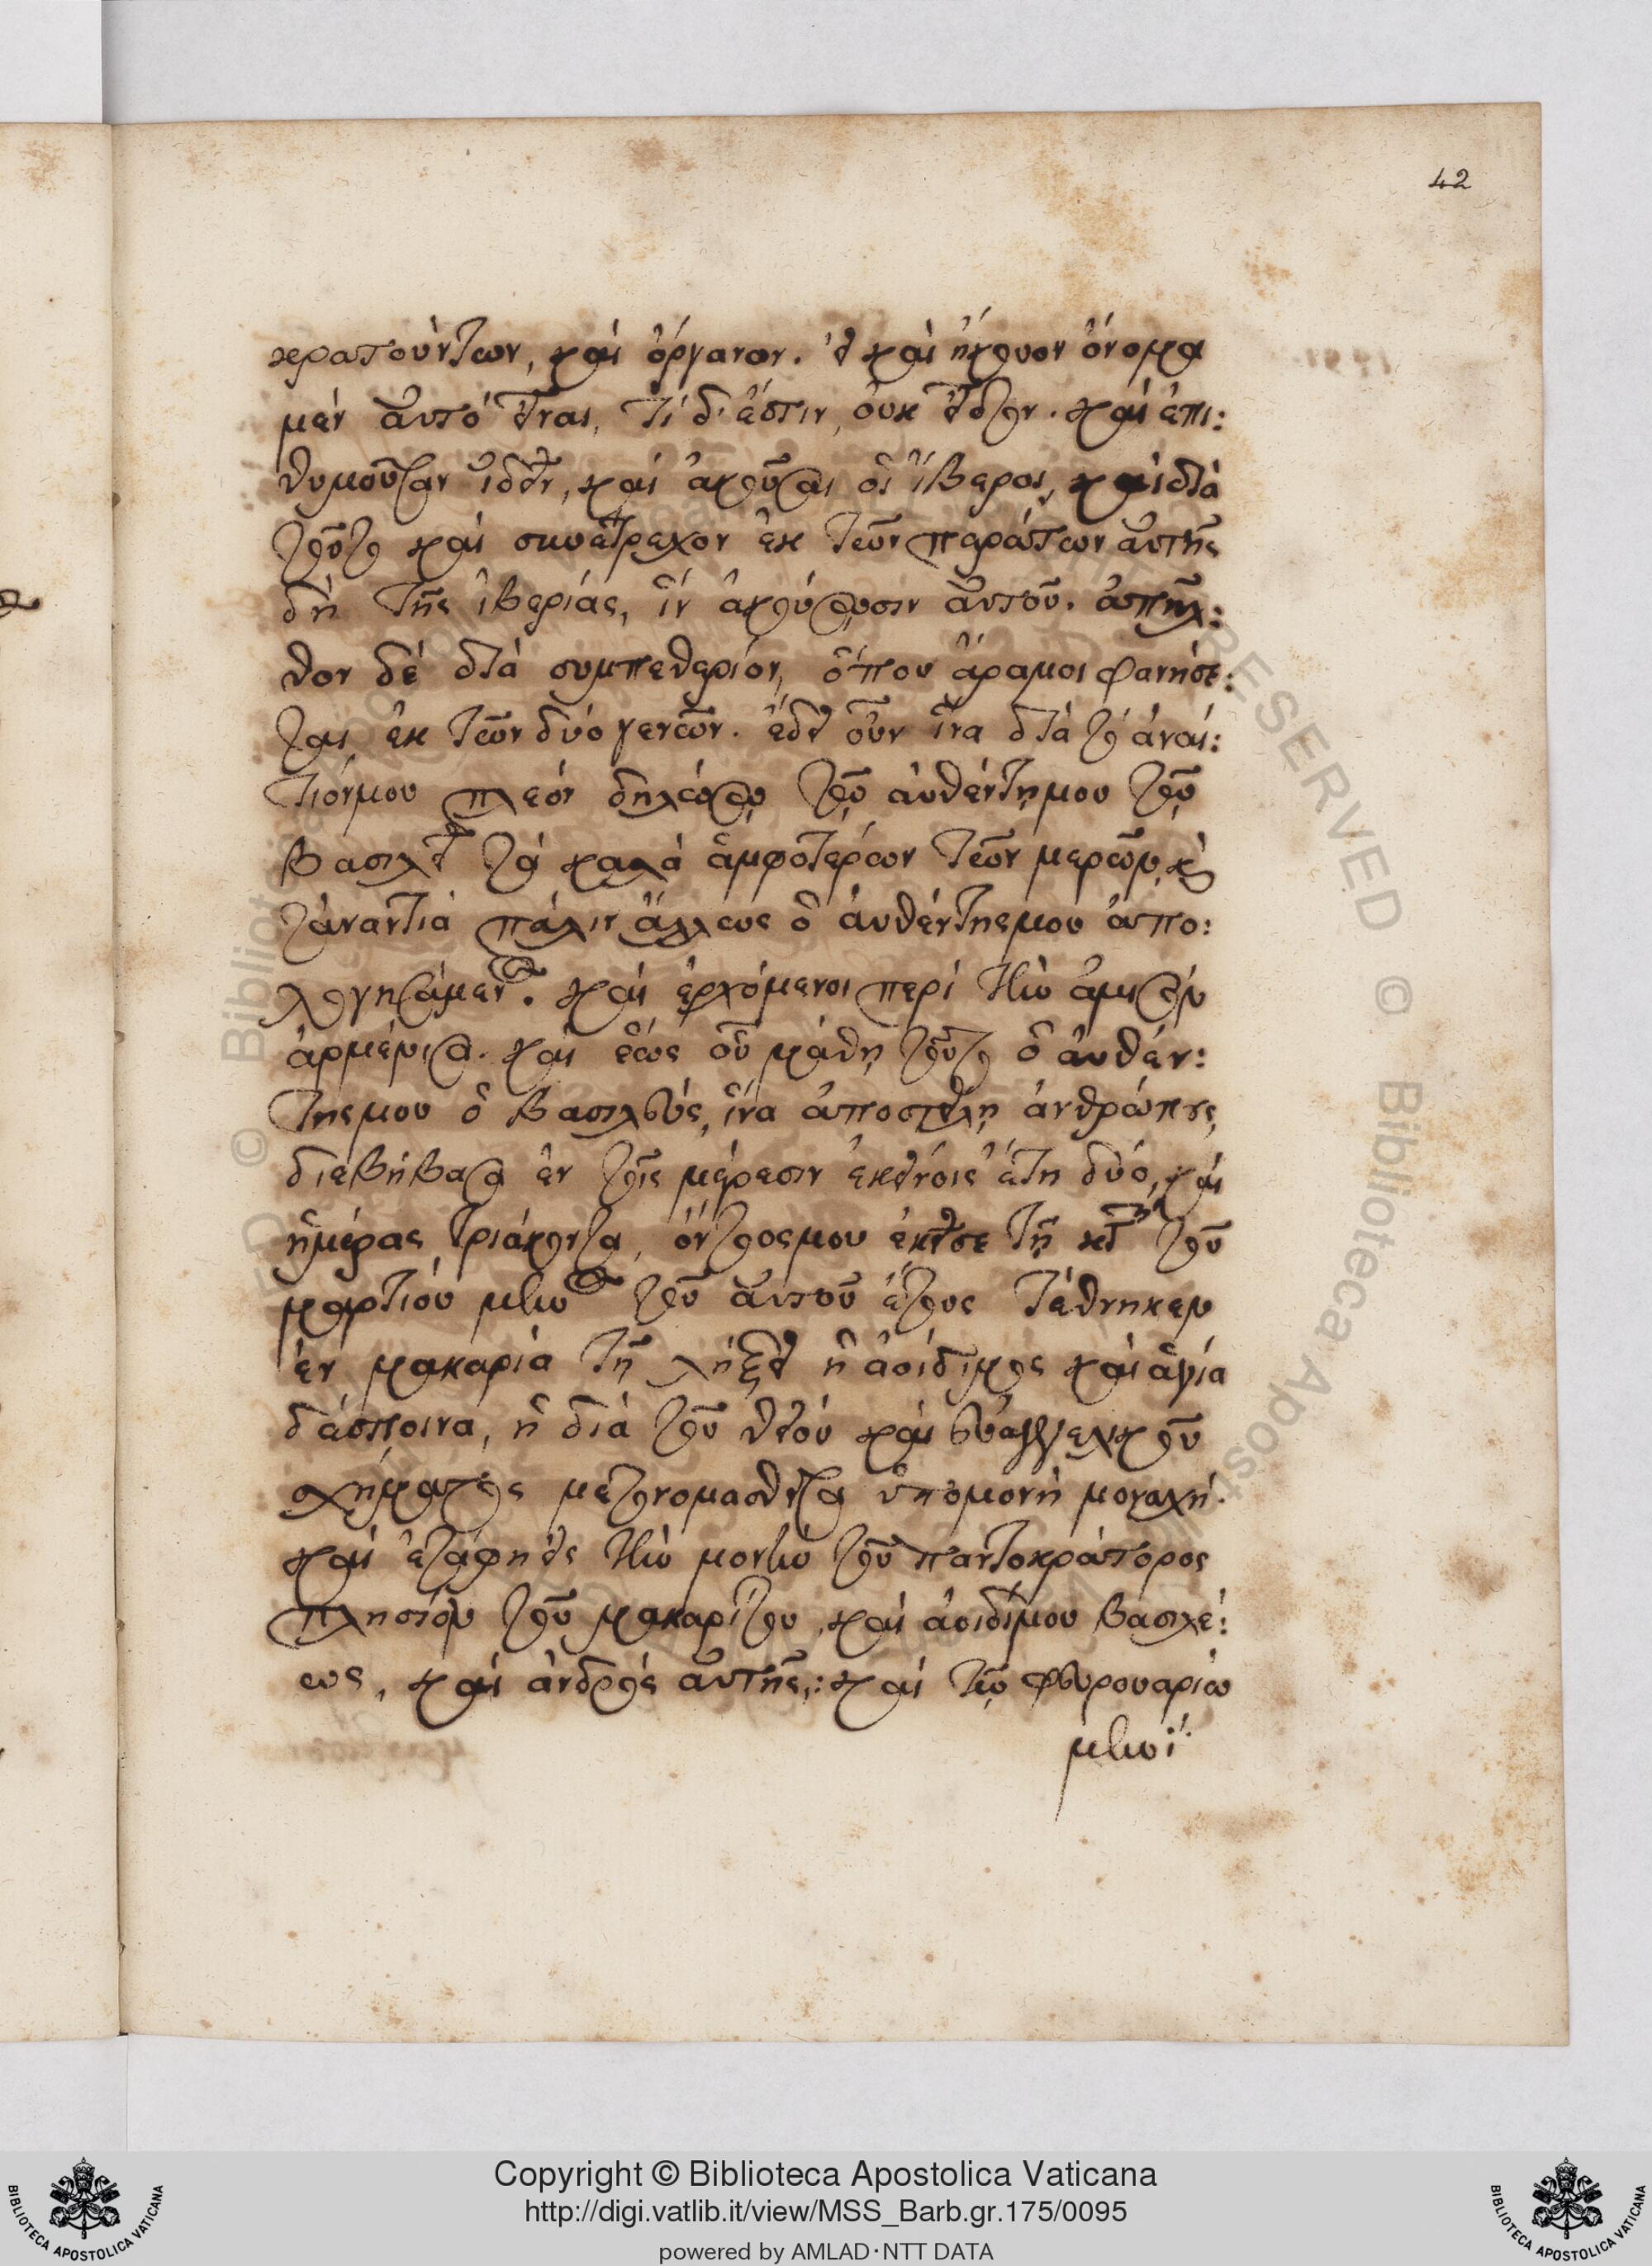 42
κρατούντων, καὶ ὄργανον. εἰ καὶ ἤκουον ὄνομα
μὲν αὐτὸ εἶναι, τί δ' ἔστιν, οὐκ εἶδον. καὶ ἐπι:
θυμοῦσαν ἰδεῖν, καὶ ἀκοῦσαι οἱ ἴβεροι, καὶ διὰ
τοῦτο καὶ συνέτρεχον ἐκ τῶν περάτων αὐτῆς
δὴ τῆς ἰβερίας, ἵν ἀκούσωσιν αὐτοῦ. ἀπῆλ:
θον δὲ διὰ συμπεθερίον, ὅπου ἄραμοι φανήσε:
ται ἐκ τῶν δύο γενῶν. ἔδει οὖν ἵνα διὰ τὸ ἀναί:
τιόνμου πλεόν δηλώσω τοῦ αὐθέντημου τοῦ
βασιλεῖ τὰ καλὰ ἀμφοτέρων τῶν μερῶν, κὶ
τἀναντία πάλιν ἄλλως ὁ αὐθέντησμου ἀπο:
λογησάμεν. καὶ ἐρχόμενοι περὶ τὴν ἀμισὸν
ἀρμένισα. καὶ ἕως οὗ μάθῃ τοῦτο ὁ αὐθέν:
τησμου ὁ βασιλεύς, ἵνα ἀποστείλῃ ἀνθρώπους,
διεβήβασα ἐν τοῖς μέρεσιν ἐκείνοις ἔτη δύο, καὶ
ἡμέρας τριάκοντα, ὄντοσμου ἐκεῖσε τῇ τοῦ
μαρτίου μην τοῦ αὐτοῦ ἔτους τέθνηκεν
ἐν μακαρία τῇ λήξει ἡ ἀοίδιμος καὶ ἁγία
δέσποινα, ἡ διὰ τοῦ θείου καὶ εὐαγγελικοῦ
σχήματος μετονομασθεῖσα ὑπομονὴ μοναχή.
καὶ ἐτάφη εἰς τὴν μονὴν τοῦ παντοκράτορος
πλησίον τοῦ μακαρίτου, καὶ ἀοιδίμου βασιλέ:
ως, καὶ ἀνδρὸς αὐτῆς,: καὶ τῷ φευρουαρίω
μηνί:
Copyright © Biblioteca Apostolica Vaticana
http://digi.vatlib.it/view/MSS_Barb.gr.175/0095
powered by AMLAD·NTT DATA